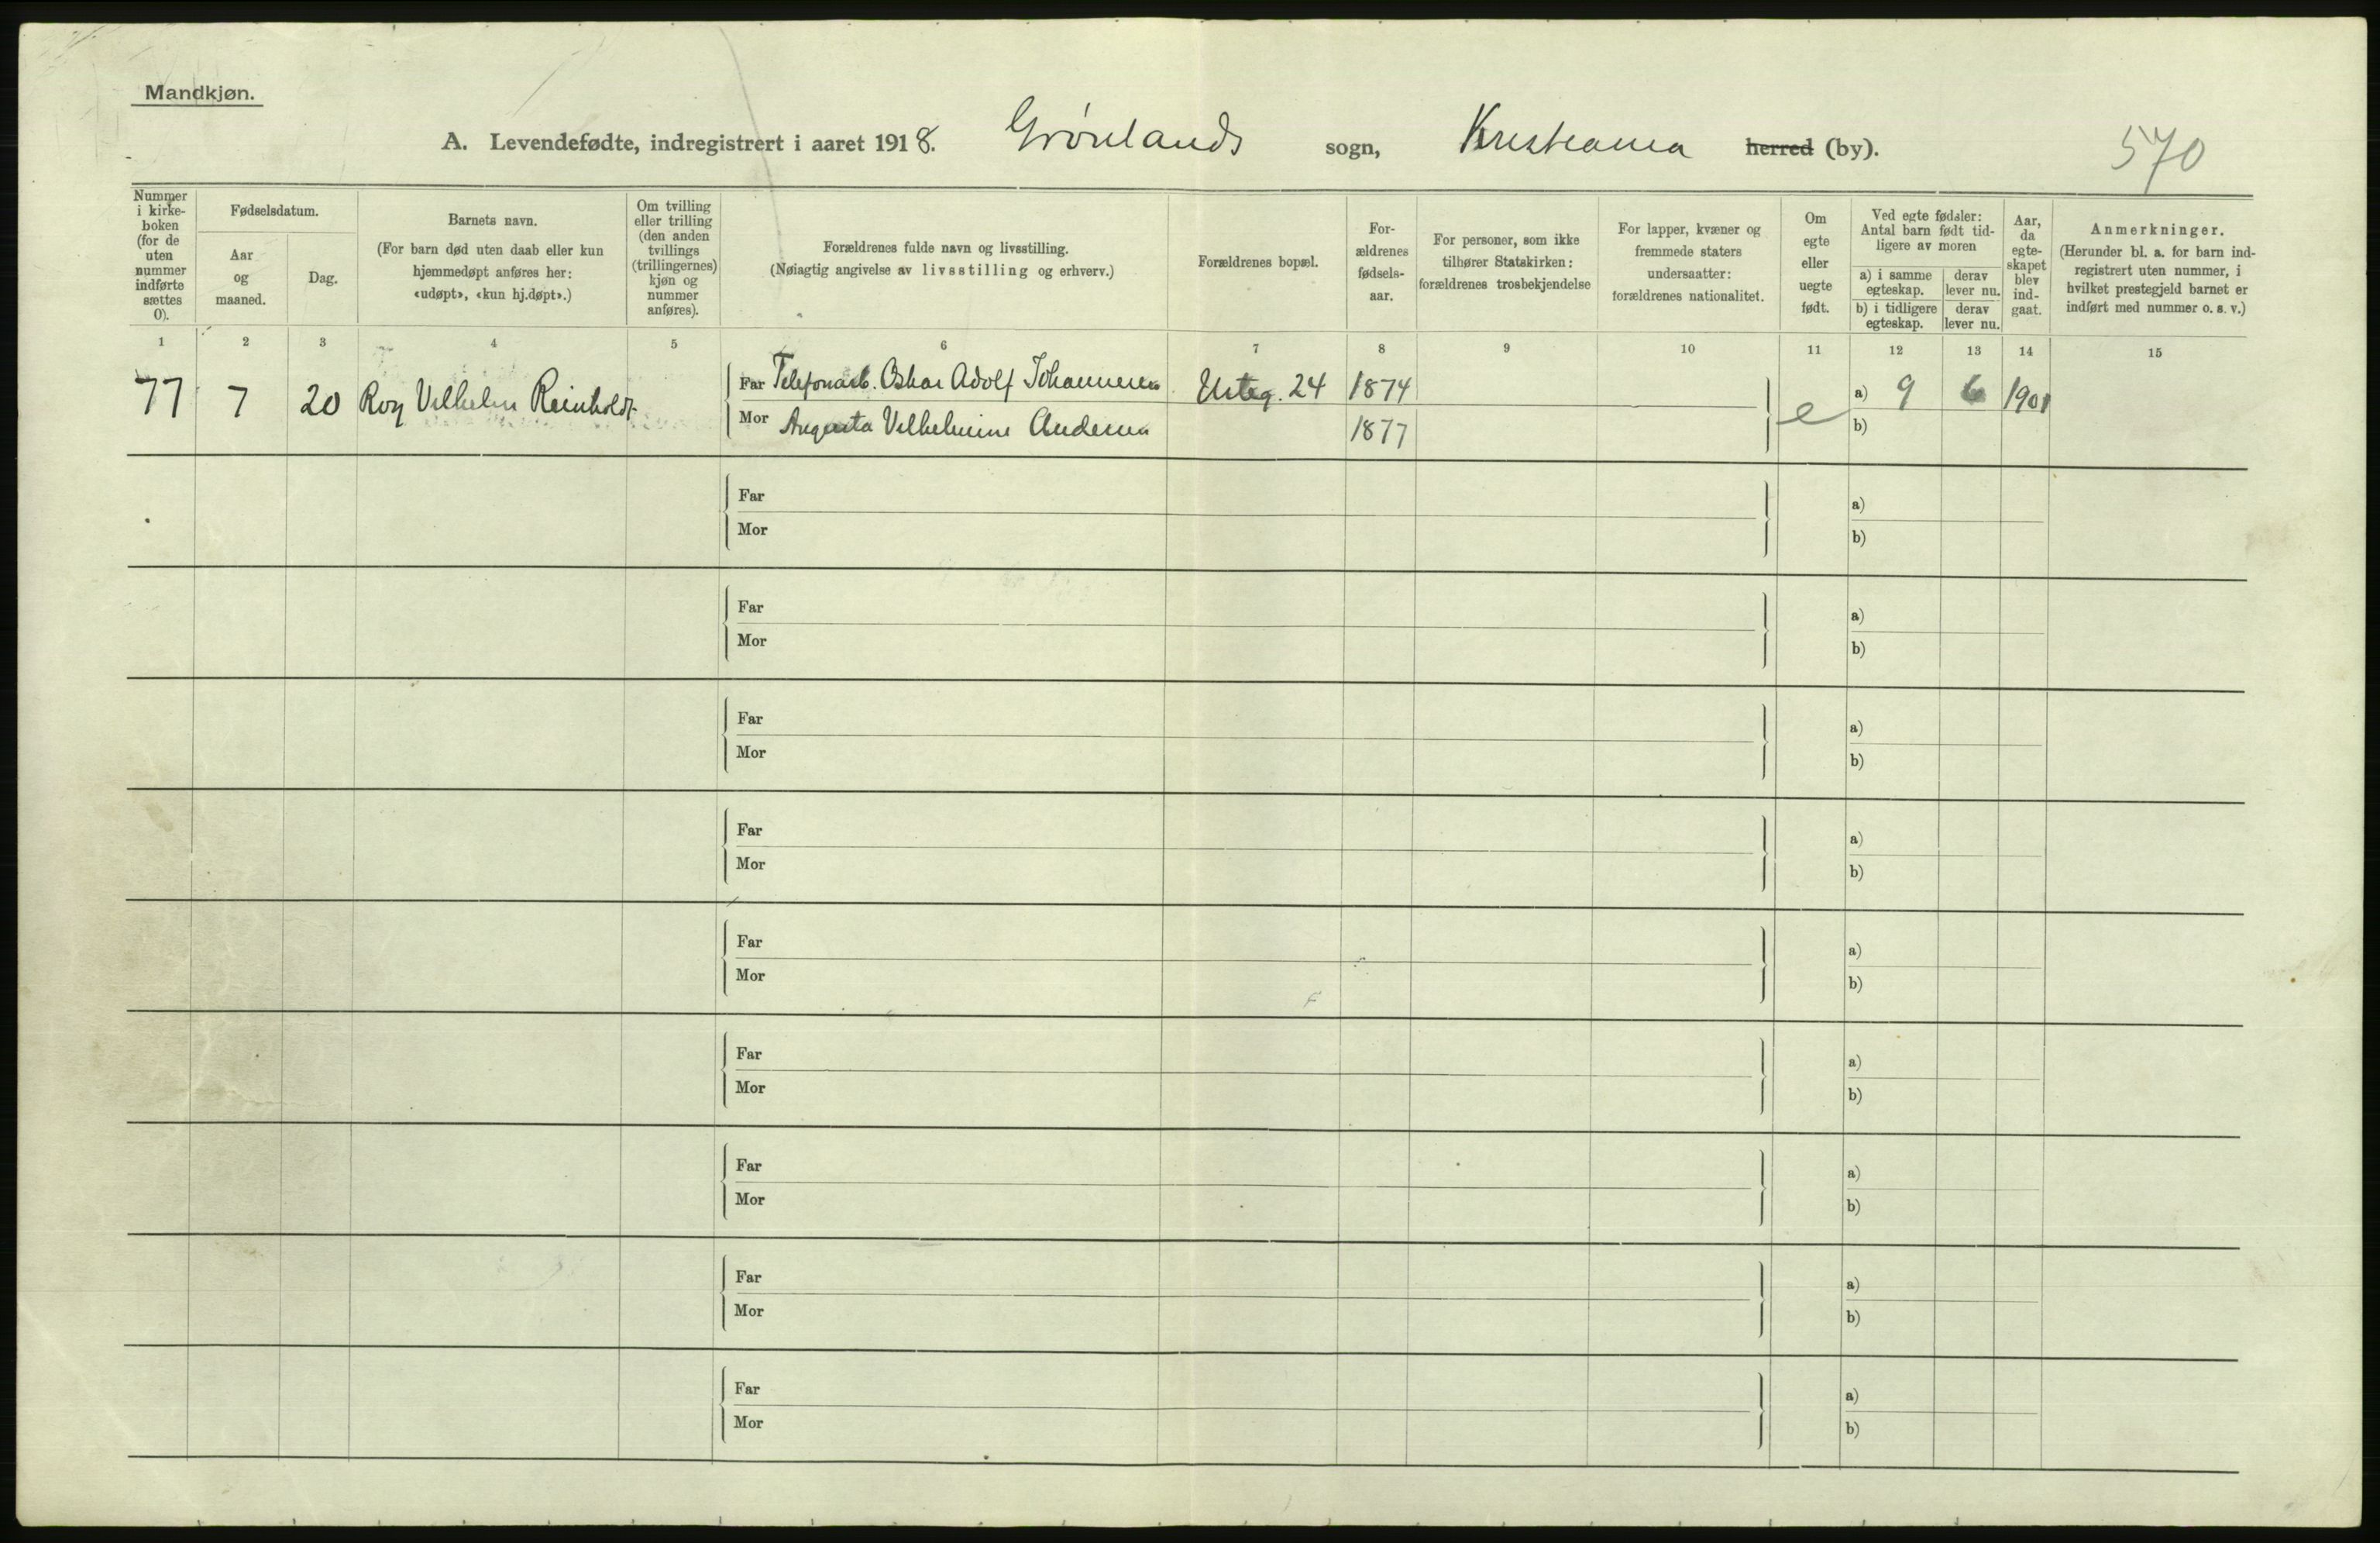 Mandkjøn.
A. Levendefødte, indregistrert i aaret 1918. Grønlands sogn, Kristiania herred (by). 570
Nummer i kirke-boken (for de uten nummer indførte sættes 0).
Fødselsdatum.
Aar og maaned.
Dag.
Barnets navn.
(For barn død uten daab eller kun hjemmedøpt anføres her: «udøpt», «kun hj.døpt».)
Om tvilling eller trilling (den anden tvillings (trillingernes) kjøn og nummer anføres).
Forældrenes fulde navn og livsstilling.
(Nøiagtig angivelse av livsstilling og erhverv.)
Forældrenes bopæl.
For-ældrenes fødsels-aar.
For personer, som ikke tilhører Statskirken: forældrenes trosbekjendelse
For lapper, kvæner og fremmede staters undersaatter: forældrenes nationalitet.
Om egte eller uegte født.
Ved egte fødsler: Antal barn født tid-ligere av moren
a) i samme egteskap.
derav lever nu.
b) i tidligere egteskap.
derav lever nu.
Aar, da egte-skapet blev ind-gaat.
Anmerkninger.
(Herunder bl. a. for barn ind-registrert uten nummer, i hvilket prestegjeld barnet er indført med nummer o. s. v.)
1 2 3 4 5 6 7 8 9 10 11 12 13 14 15
77 7 20 Roy Vilhelm Reinholdt
Far Telefonarb. Oskar Adolf Johannesen Urteg. 24 1874
e a) 9 6 1901
Mor Augusta Vilhelmine Andersen 1877
b)
Far a)
Mor b)
Far a)
Mor b)
Far a)
Mor b)
Far a)
Mor b)
Far a)
Mor b)
Far a)
Mor b)
Far a)
Mor b)
Far a)
Mor b)
Far a)
Mor b)